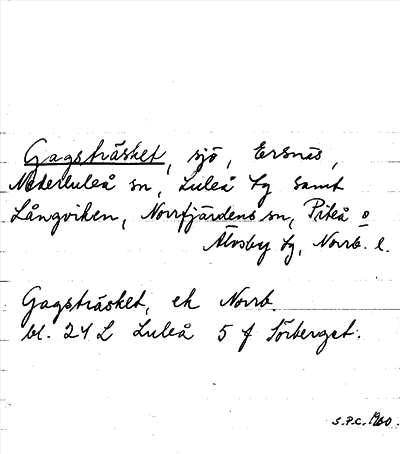 Gagsträsket, sjö, Ersnäs,
Nederluleå sn, Luleå tg samt
Långviken, Norrfjärdens sn, Piteå o
Älvsby tg, Norrb. l.
Gagsträsket, ek Norrb.
bl. 24 L Luleå 5 f Sörberget.
S.P.C. 1960.